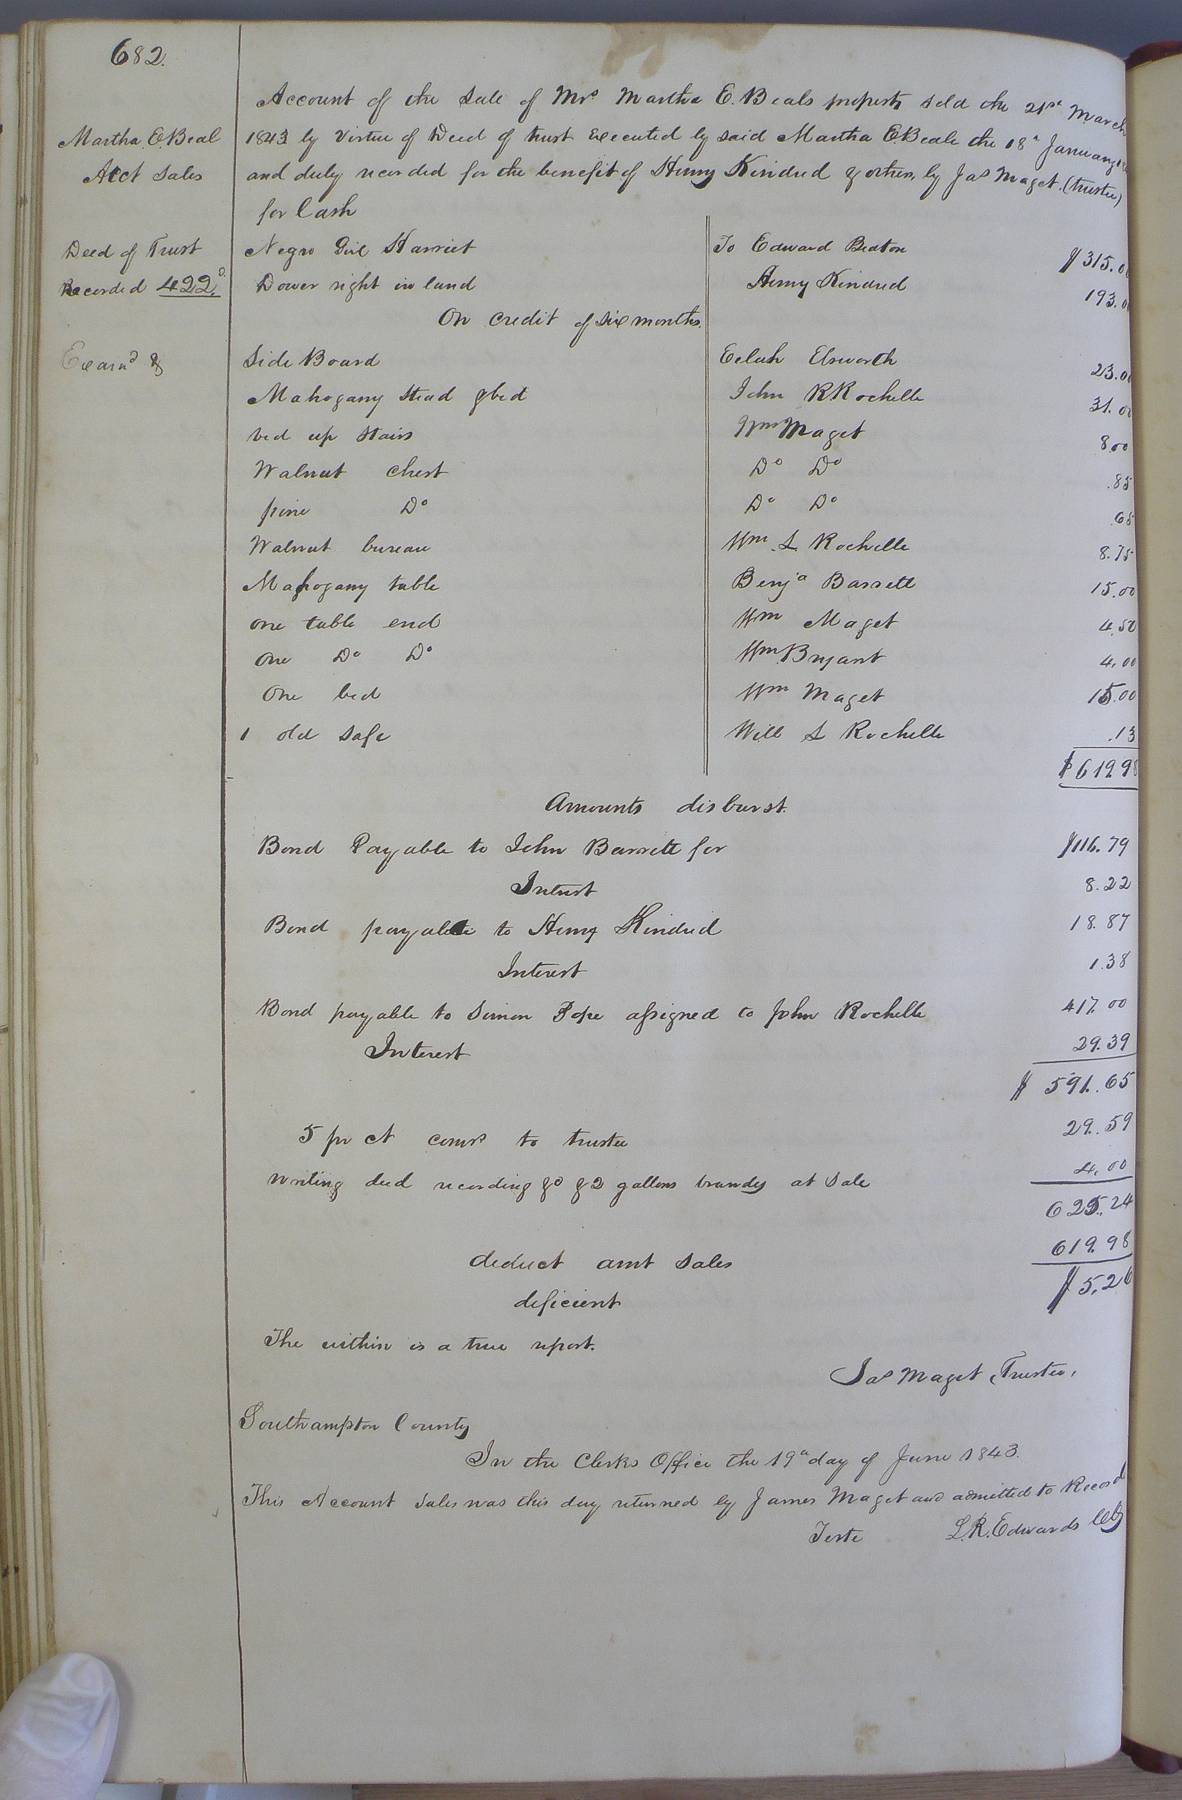 682.
Account of the Sale of Mrs Martha E. Beals property sold the 21st March
Martha. E. Beal
1843 by Virtue of Deed of trust executed by said Martha E. Beale the 18th January
Acct Sales
and duly recorded for the benefit of Henry Kindred & others, by Jas Maget. (trustee)
for Cash
Deed of Trust
Negro Girl Harriet To Edward Beaton $315.00
Recorded 422.
Dower right in land Henry Kindred 193.00
On credit of six months.
Examd &
Side Board Eelah Elsworth 23.00
Mahogany Stead & bed John R Rochelle 31.00
bed up stairs Wm Maget 8.00
Walnut chest Do Do .85
pine Do Do Do
Walnut bureau Wm. S. Rochelle 8.75
Mahogany table Benja Barrett 15.00
one table end Wm Maget 4.50
one Do Do Wm. Bryant 4.00
One bed Wm Maget 15.00
1 old Safe Will S Rochelle .13
$619.98
Amounts disburst.
Bond Payable to John Barrett for $116.79
Intrest 8.22
Bond payable to Henry Kindred 18.87
Interest 1.38
Bond payable to Simon Pope assigned to John Rochelle 417.00
Interest 29.39
$ 591.65
5 pr ct coms to trustee 29.59
writing deed recording &c & 2 gallons brandy at Sale 4.00
625.24
deduct amt sales 619.98
deficient $5.26
The within is a true report.
Jas Maget, Trustee,
Southampton County
In the Clerks Office the 19th day of June 1843.
This Account Sales was this day returned by James Maget and admitted to Record
Teste L. R. Edwards Clk